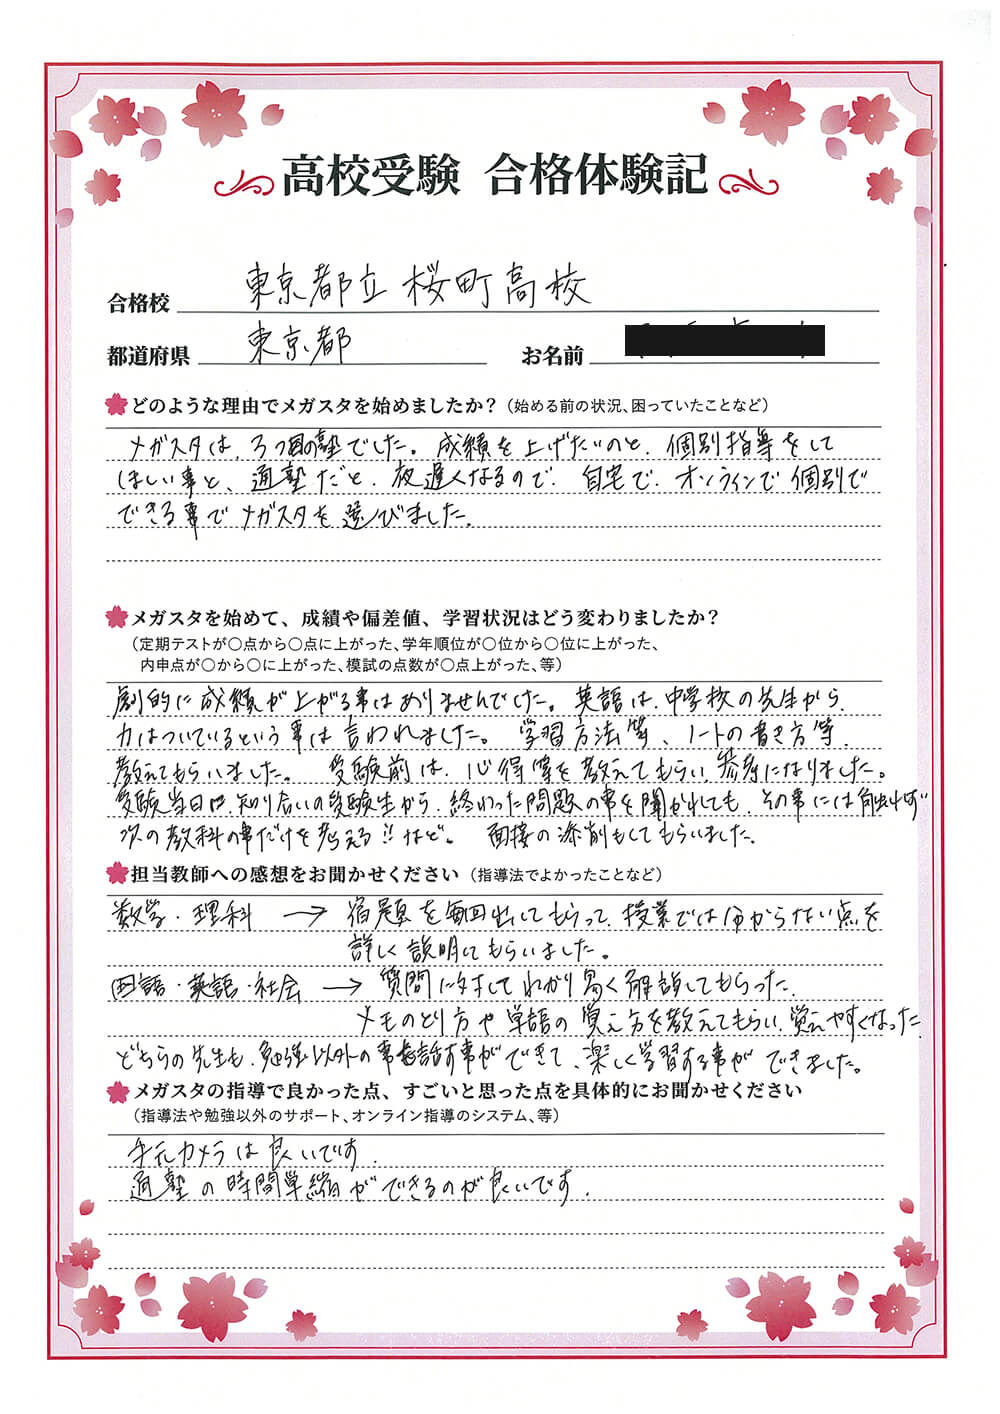 高校受験 合格体験記
合格校 東京都立桜町高校
都道府県 東京都 お名前
どのような理由でメガスタを始めましたか?(始める前の状況、困っていたことなど)
メガスタは、3つ目の塾でした。成績を上げたいのと、個別指導をして
ほしい事と、通塾だと、夜遅くなるので、自宅で、オンラインで個別で
できる事でメガスタを選びました。
メガスタを始めて、成績や偏差値、学習状況はどう変わりましたか?
(定期テストが○点から○点に上がった、学年順位が○位から○位に上がった、
内申点が○から○に上がった、模試の点数が○点上がった、等)
劇的に成績が上がる事はありませんでした。英語は、中学校の先生から、
力はついているという事は言われました。学習方法等、ノートの書き方等、
教えてもらいました。受験前は、心得等を教えてもらい、参考になりました。
受験当日は、知り合いの受験生から、終わった問題の事を聞かれても、その事には触れず
次の教科の事だけを考える!!など。面接の添削もしてもらいました。
担当教師への感想をお聞かせください(指導法でよかったことなど)
数学・理科 → 宿題を毎回出してもらって、授業では分からない点を
詳しく説明してもらいました。
国語・英語・社会 → 質問に対してわかり易く解説してもらった。
メモのとり方や単語の覚え方を教えてもらい、覚えやすくなった。
どちらの先生も、勉強以外の事も話す事ができて、楽しく学習する事ができました。
メガスタの指導で良かった点、すごいと思った点を具体的にお聞かせください
(指導法や勉強以外のサポート、オンライン指導のシステム、等)
手元カメラは良いです。
通塾の時間短縮ができるのが良いです。